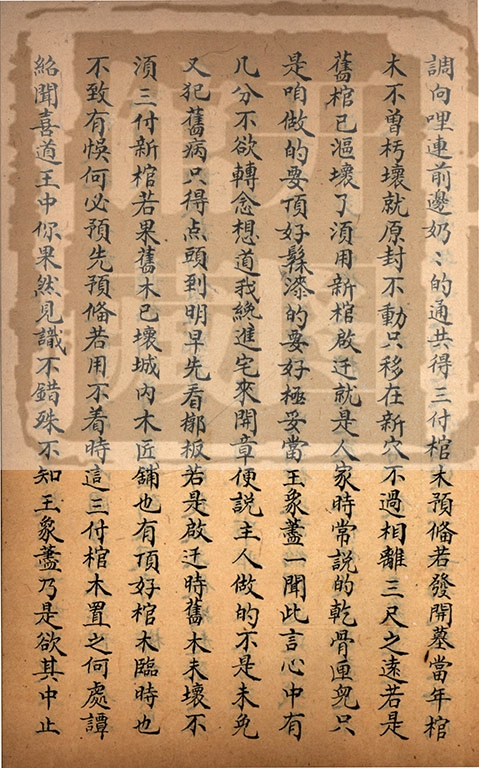 調向哩連前邊奶〻的通共得三付棺木預偹若發開墓當年棺
木不曾朽壞就原封不動只移在新穴不過相離三尺之遠若是
舊棺已漚壞了湏用新棺啟迁就是人家時常説的乾骨匣児只
是咱做的要頂好䰍漆的要好極妥當王象藎一聞此言心中有
几分不欲轉念想道我纔進宅來開章便説主人做的不是未免
又犯舊病只得点頭到明早先看槨板若是啟迁時舊木未壞不
湏三付新棺若果舊木已壞城内木匠舖也有頂好棺木臨時也
不致有悞何必預先預偹若用不着時這三付棺木置之何處譚
紹聞喜道王中你果然見識不錯殊不知王象藎乃是欲其中止